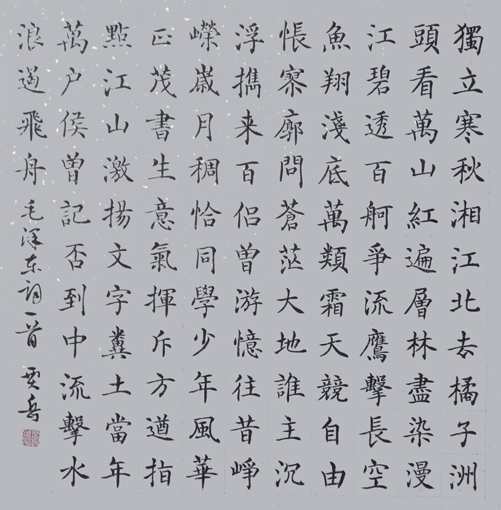 獨立寒秋湘江北去橘子洲
頭看萬山紅遍層林盡染漫
江碧透百舸爭流鷹擊長空
魚翔淺底萬類霜天競自由
悵寥廓問蒼茫大地誰主沉
浮攜来百侶曾游憶往昔崢
嶸歲月稠恰同學少年風華
正茂書生意氣揮斥方遒指
點江山激揚文字糞土當年
萬户侯曾記否到中流擊水
浪遏飛舟 毛泽东词一首